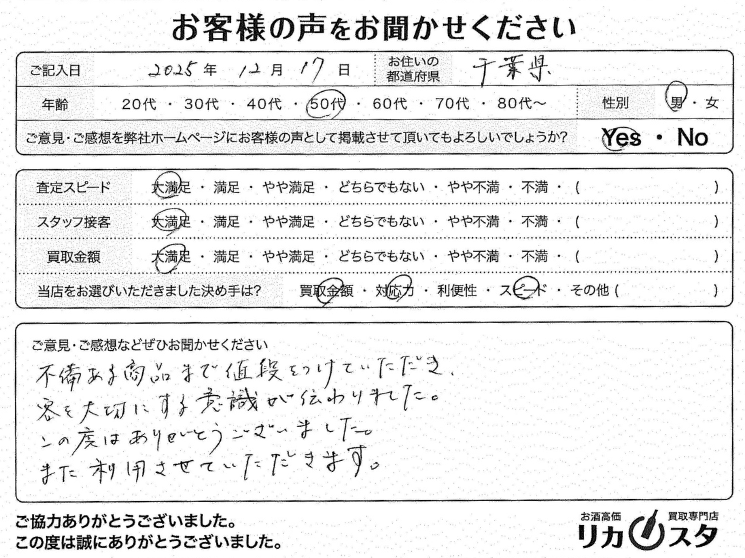 お客様の声をお聞かせください
ご記入日 2025年 12月 17日 お住いの都道府県 千葉県
年齢 20代 ・ 30代 ・ 40代 ・ 50代 ・ 60代 ・ 70代 ・ 80代～ 性別 男 ・ 女
ご意見・ご感想を弊社ホームページにお客様の声として掲載させて頂いてもよろしいでしょうか? Yes ・ No
査定スピード 大満足 ・ 満足 ・ やや満足 ・ どちらでもない ・ やや不満 ・ 不満 ・ ( )
スタッフ接客 大満足 ・ 満足 ・ やや満足 ・ どちらでもない ・ やや不満 ・ 不満 ・ ( )
買取金額 大満足 ・ 満足 ・ やや満足 ・ どちらでもない ・ やや不満 ・ 不満 ・ ( )
当店をお選びいただきました決め手は? 買取金額 ・ 対応力 ・ 利便性 ・ スピード ・ その他 ( )
ご意見・ご感想などぜひお聞かせください
不備ある商品まで値段をつけていただき、
客を大切にする意識が伝わりました。
この度はありがとうございました。
また利用させていただきます。
ご協力ありがとうございました。
この度は誠にありがとうございました。
お酒高価 買取専門店
リカスタ